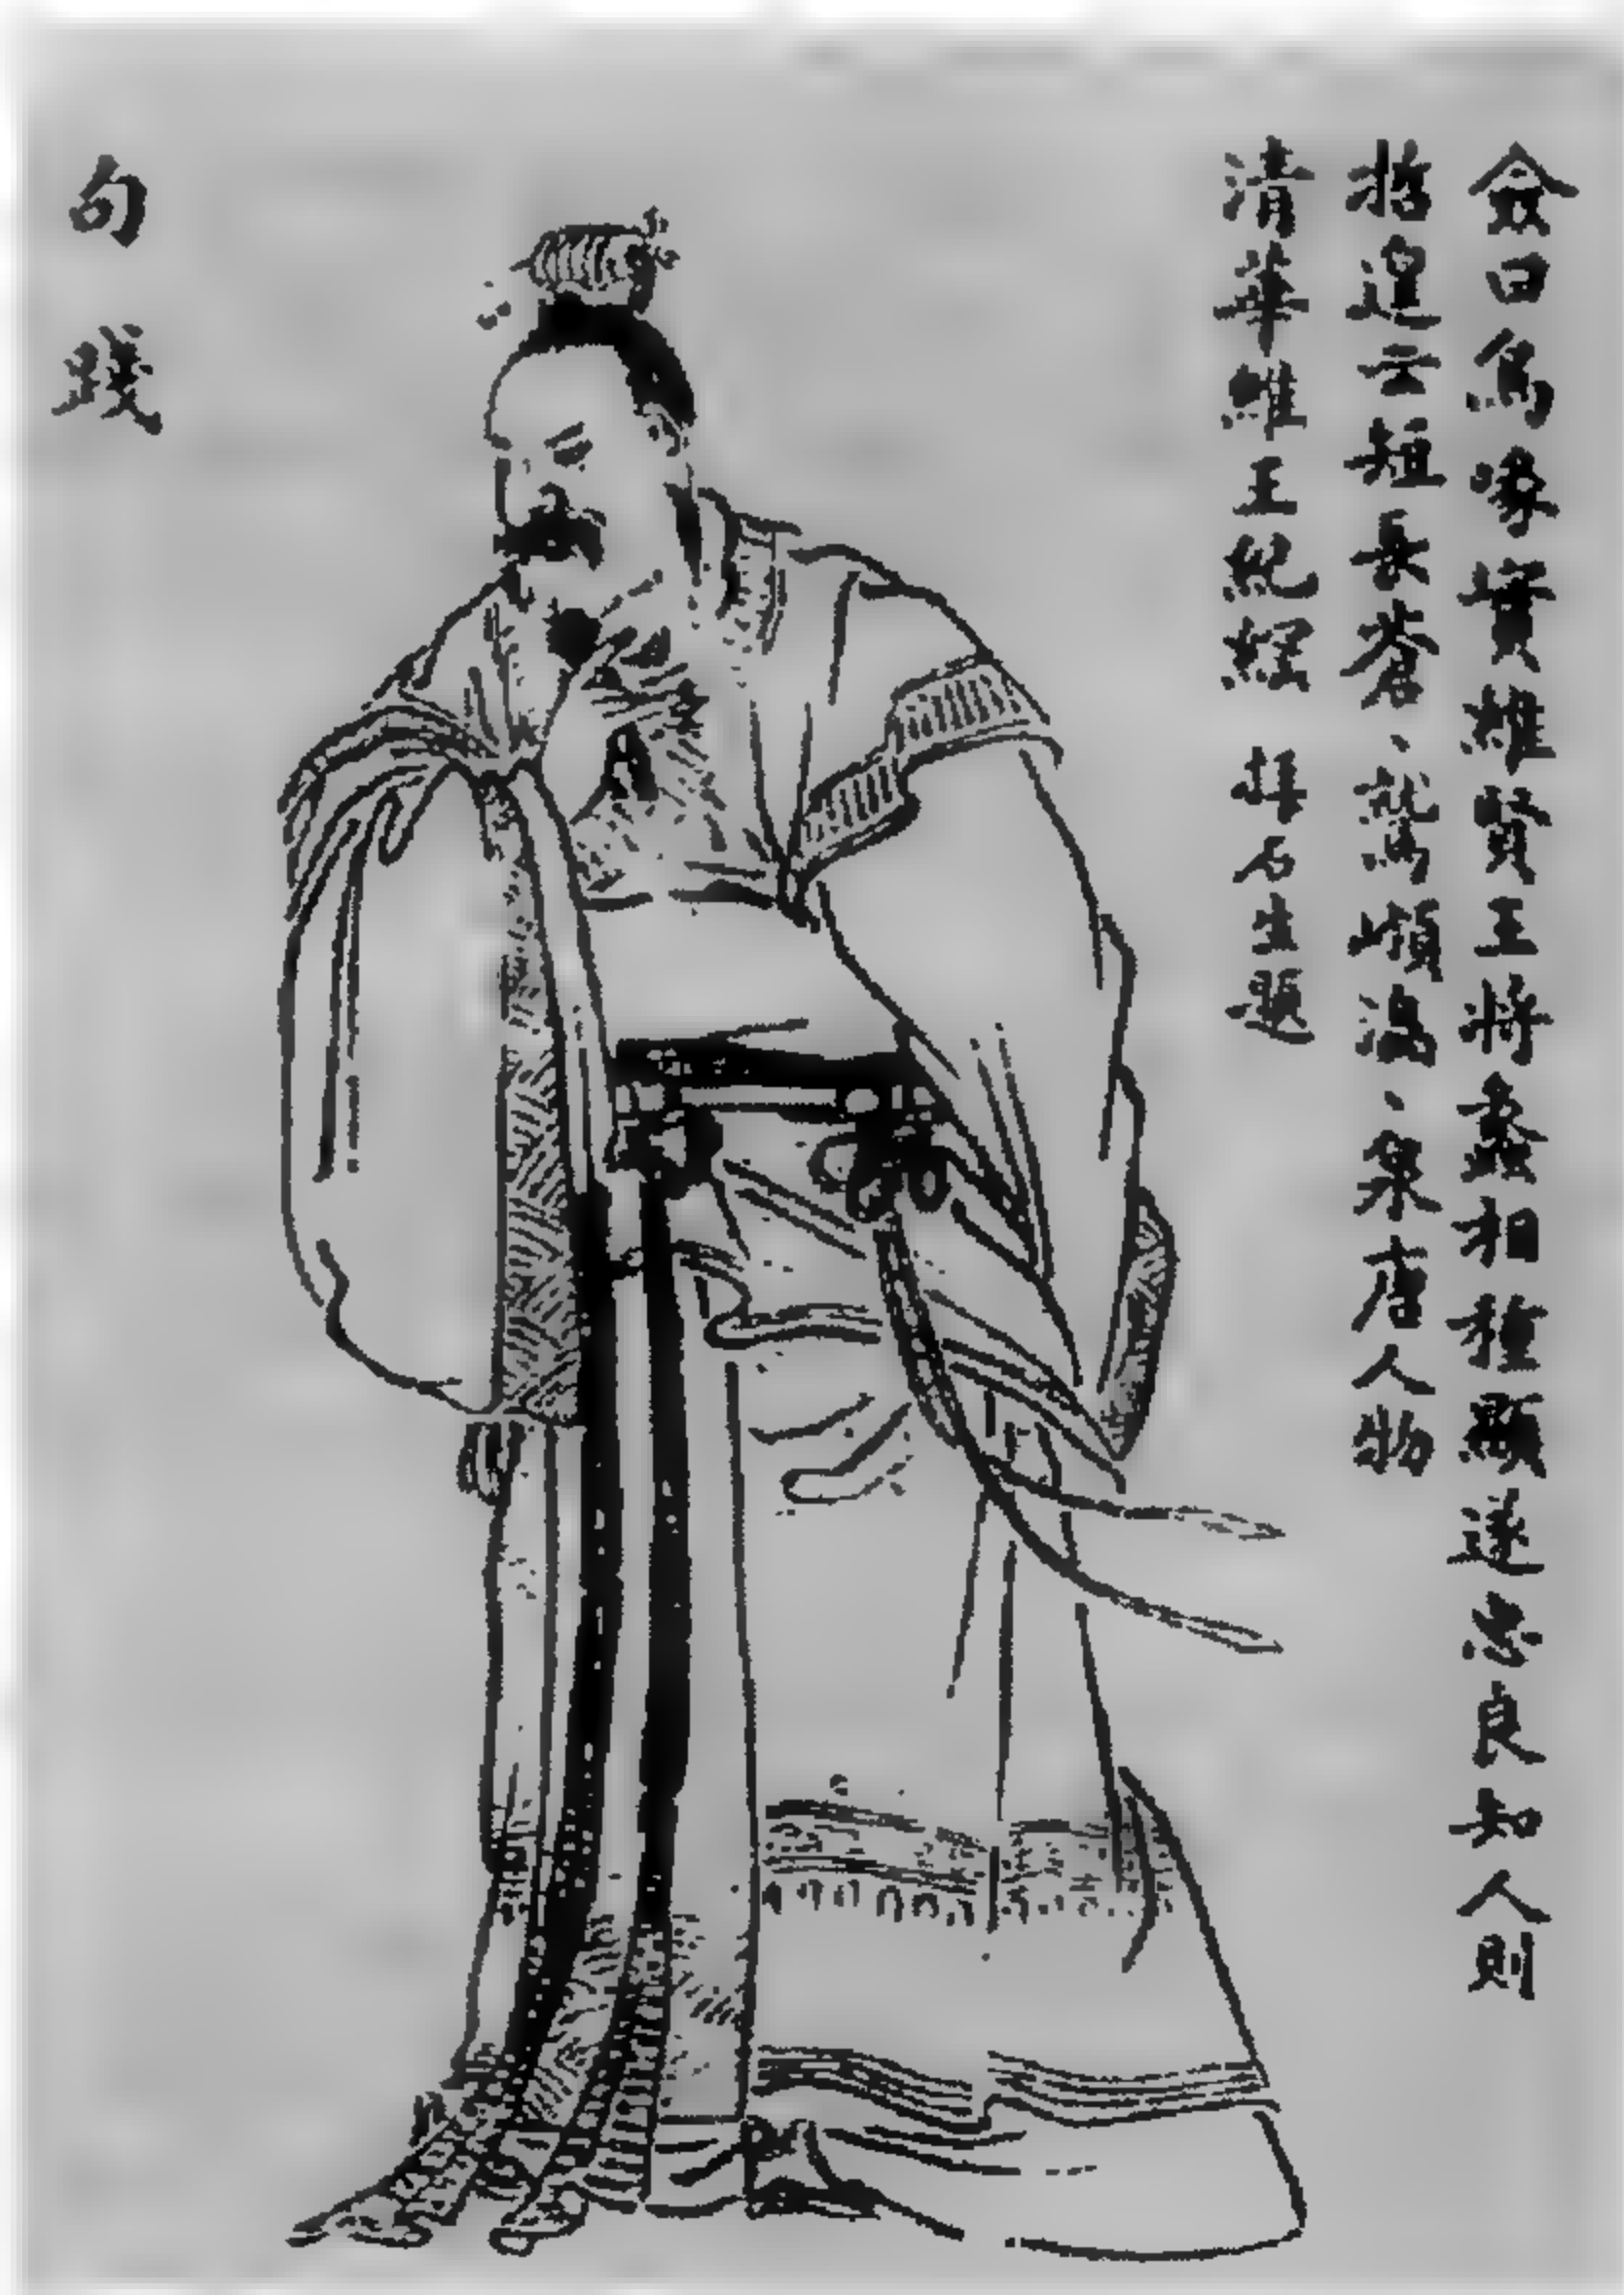 僉曰鳥喙實雄賢王將蠡相種顯遂良知人則
哲遑云短長蒼、鷲嶺、泉唐人物
清華維王 拜石生題
句踐